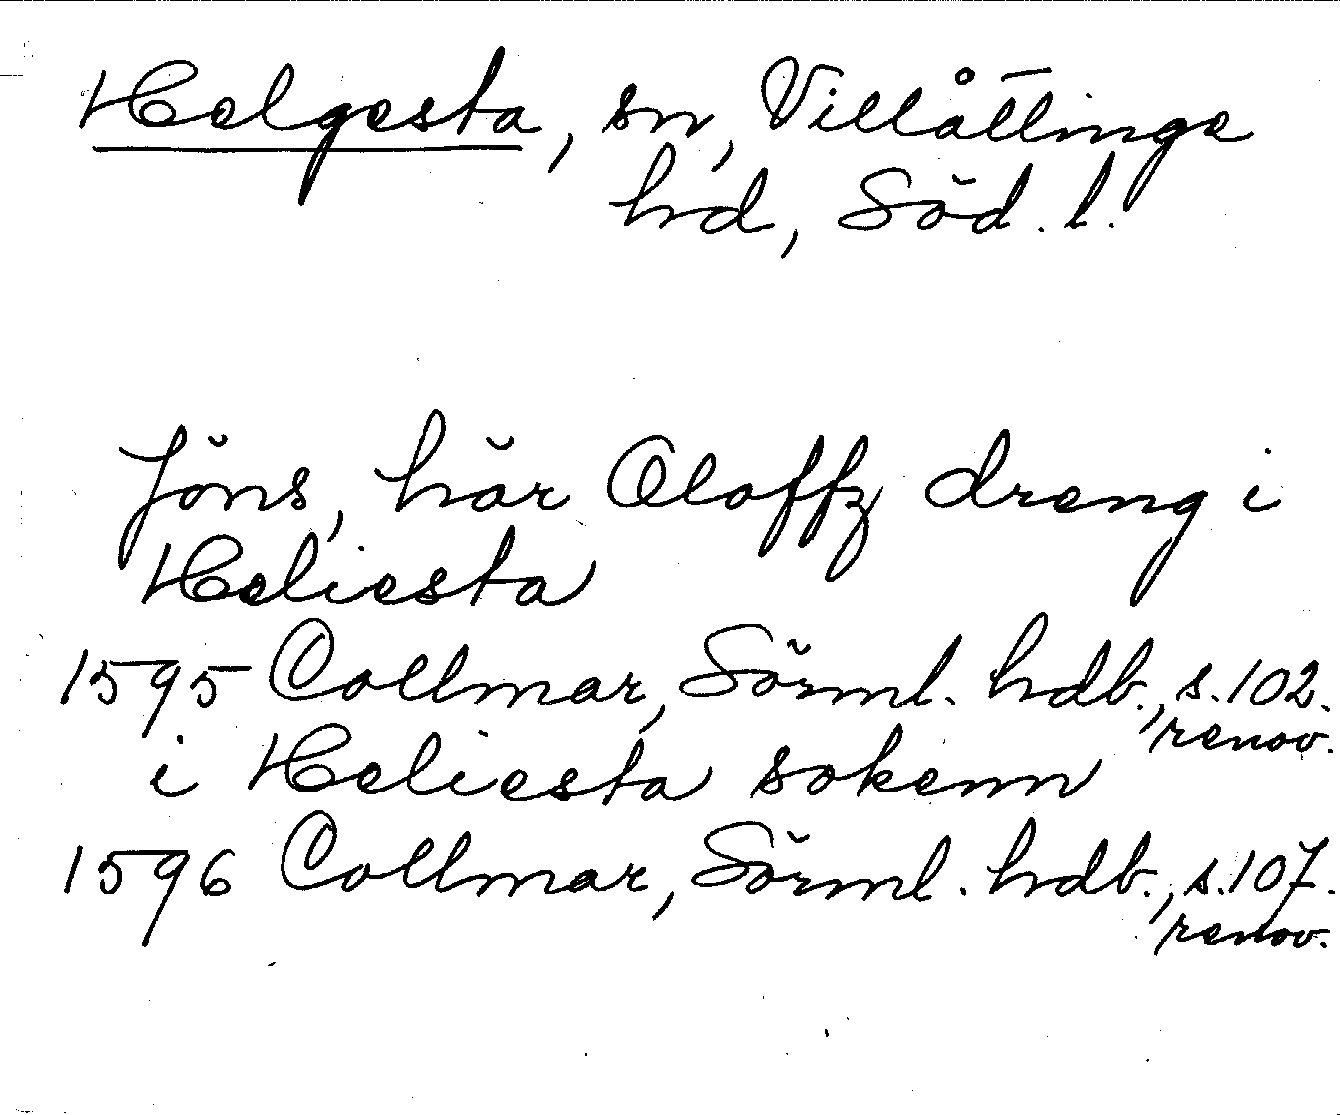 Helgesta, sn, Villåttinge
hd, Söd. l.
Jöns, här Oloffz dreng i
Heliesta
1595 Collmar, Sörml. hdb., s. 102.
renov.
i Heliesta sokenn
1596 Collmar, Sörml. hdb., s. 107.
renov.